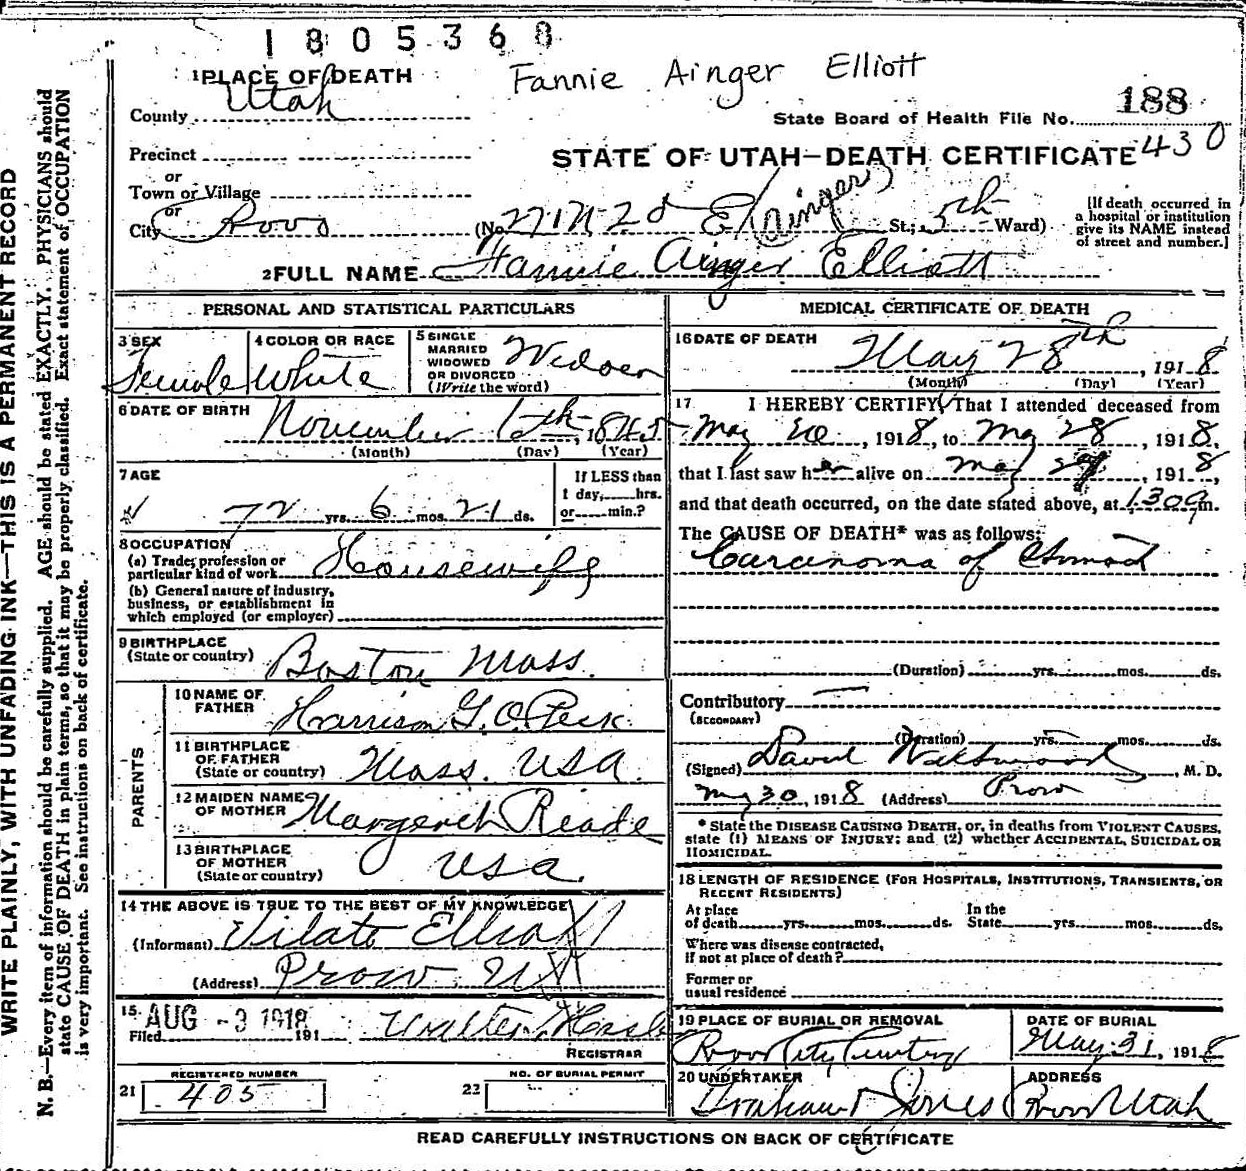 1 8 0 5 3 6 8
Fannie Ainger Elliott
1 PLACE OF DEATH
County Utah
State Board of Health File No. 188
430
Precinct
or
Town or Village
or
City Provo
STATE OF UTAH—DEATH CERTIFICATE
(No. 271 N 2d E (Ainger) St.; 5th Ward)
[If death occurred in a hospital or institution give its NAME instead of street and number.]
2 FULL NAME Fannie Ainger Elliott
PERSONAL AND STATISTICAL PARTICULARS
3 SEX Female
4 COLOR OR RACE White
5 SINGLE MARRIED WIDOWED OR DIVORCED (Write the word)
6 DATE OF BIRTH November 1845
(Month) (Day) (Year)
7 AGE 72 yrs. 6 mos. 21 ds.
If LESS than 1 day, hrs. or min.?
8 OCCUPATION
(a) Trade, profession or particular kind of work Housewife
(b) General nature of industry, business, or establishment in which employed (or employer)
9 BIRTHPLACE (State or country) Boston Mass.
PARENTS
10 NAME OF FATHER Harrison G. O. Peck
11 BIRTHPLACE OF FATHER (State or country) Mass. USA.
12 MAIDEN NAME OF MOTHER Reade
13 BIRTHPLACE OF MOTHER (State or country) USA.
14 THE ABOVE IS TRUE TO THE BEST OF MY KNOWLEDGE
(Informant) Vilate Elliott
(Address) Provo Ut
15 Filed AUG -3 1918 191
Walter
REGISTRAR
REGISTERED NUMBER
21 405
NO. OF BURIAL PERMIT
22
MEDICAL CERTIFICATE OF DEATH
16 DATE OF DEATH May 28th, 1918
(Month) (Day) (Year)
17 I HEREBY CERTIFY, That I attended deceased from
May 20, 1918, to May 28, 1918,
that I last saw her alive on May, 1918,
and that death occurred, on the date stated above, at 130 a m.
The CAUSE OF DEATH* was as follows:
Carcinoma of Stomach
(Duration) yrs. mos. ds.
Contributory
(SECONDARY)
(Duration) yrs. mos. ds.
(Signed) David Westwood, M. D.
May 30, 1918 (Address) Provo
* State the DISEASE CAUSING DEATH, or, in deaths from VIOLENT CAUSES, state (1) MEANS OF INJURY; and (2) whether ACCIDENTAL, SUICIDAL OR HOMICIDAL.
18 LENGTH OF RESIDENCE (FOR HOSPITALS, INSTITUTIONS, TRANSIENTS, OR RECENT RESIDENTS)
At place of death yrs. mos. ds. In the State yrs. mos. ds.
Where was disease contracted, If not at place of death?
Former or usual residence
19 PLACE OF BURIAL OR REMOVAL Provo City Cemetery
DATE OF BURIAL May 31, 1918
20 UNDERTAKER Jones
ADDRESS Provo Utah
READ CAREFULLY INSTRUCTIONS ON BACK OF CERTIFICATE
WRITE PLAINLY, WITH UNFADING INK—THIS IS A PERMANENT RECORD
N. B.—Every item of information should be carefully supplied. AGE should be stated EXACTLY. PHYSICIANS should
state CAUSE OF DEATH in plain terms, so that it may be properly classified. Exact statement of OCCUPATION
is very important. See instructions on back of certificate.